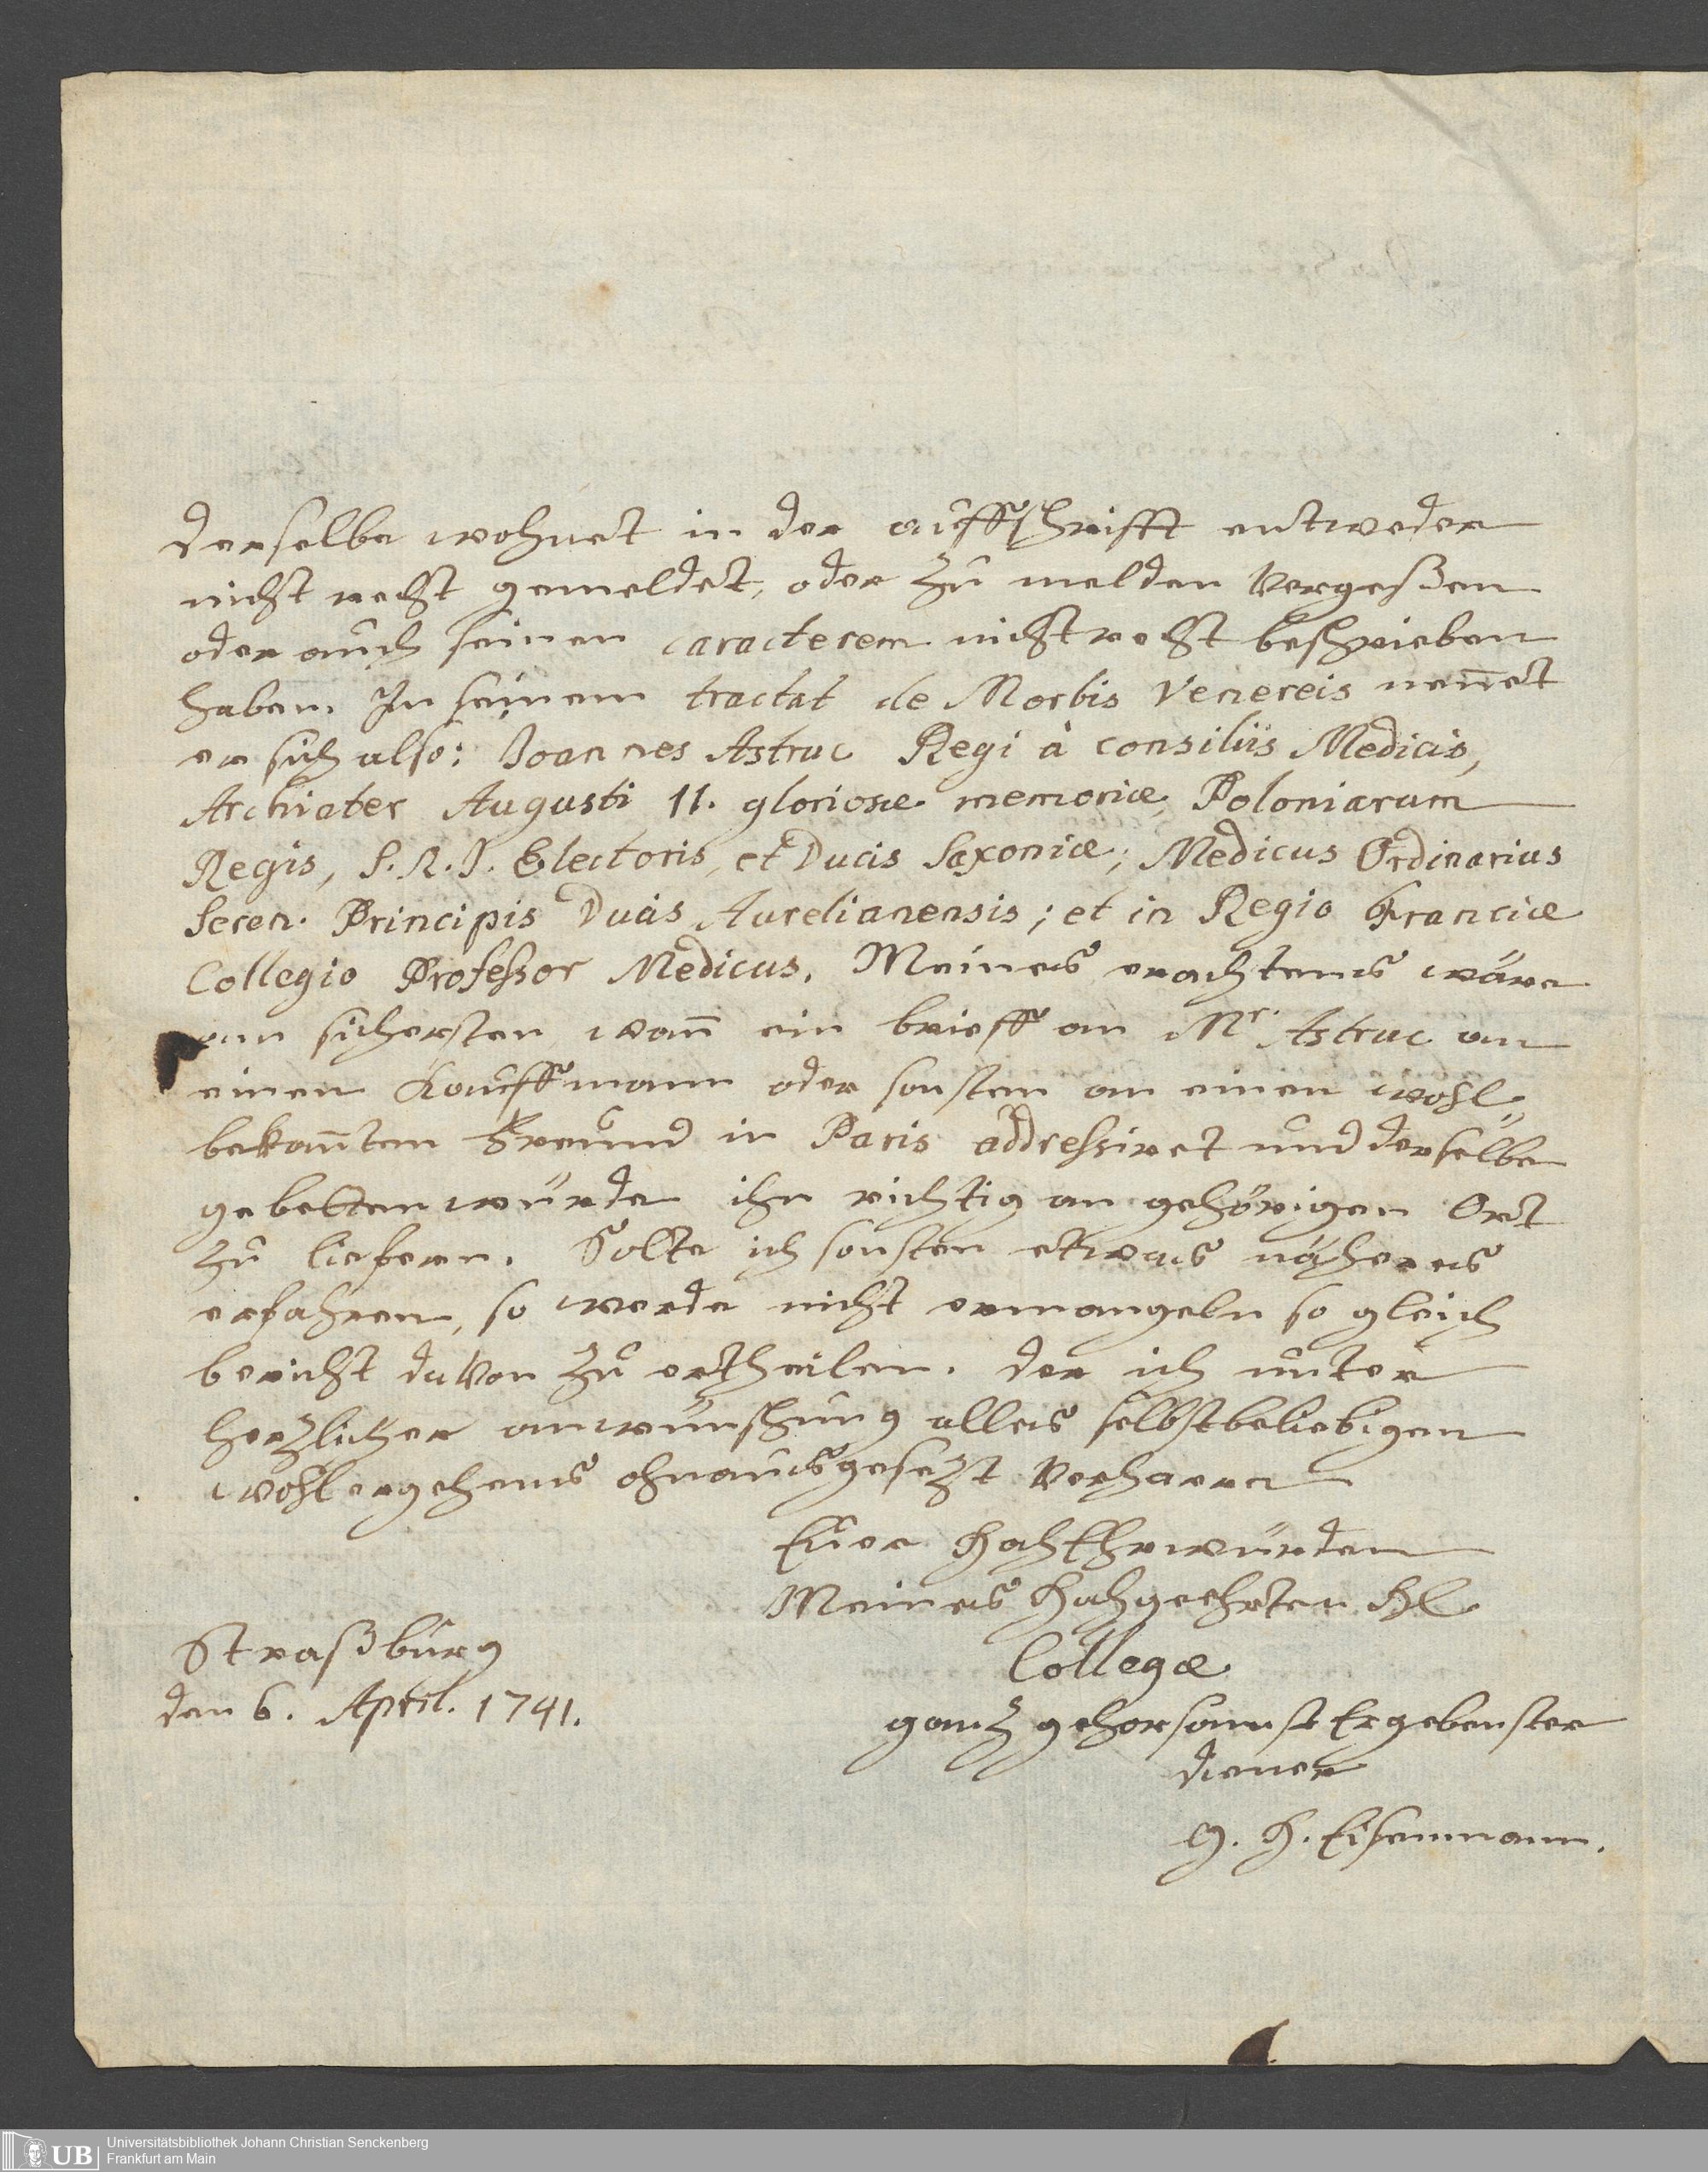 derselbe wohnet in der auffschrifft entweder
nicht recht gemeldet, oder zu melden vergeßen
oder auch seinen caracterem nicht recht beschrieben
haben. In seinem tractat de Morbis Venereis nen̄et
er sich also: Joannes Astruc Regi à consiliis Medicis,
Archiater Augusti II. gloriosæ memoriæ, Poloniarum
Regis, S. R. I. Electoris, et Ducis Saxoniæ; Medicus Ordinarius
Seren. Principis Ducis Aurelianensis; et in Regio Franciæ
Collegio Professor Medicus. Meines erachtens wäre
am sichersten wan̄ ein brieff an Mr. Astruc an
einen Kauffmann oder sonsten an einen wohl„
bekan̄ten Freund in Paris addressiret und derselbe
gebetten würde ihn richtig an gehörigen Ort
zu liefern. Solte ich sonsten etwas näheres
erfahren, so werde nicht ermangeln so gleich
bericht davon zu ertheilen. der ich unter
herzlicher anwünschung alles selbstbeliebigen
wohlergehens ohnausgesezt verharre
Euer HochEhrwürden
Meines Hochgeehrten H
Collegæ
Straßburg
den 6. April. 1741.
ganz gehorsamst Ergebenster
diener
G. H. Eisenmann.
UB
Universitätsbibliothek Johann Christian Senckenberg
Frankfurt am Main